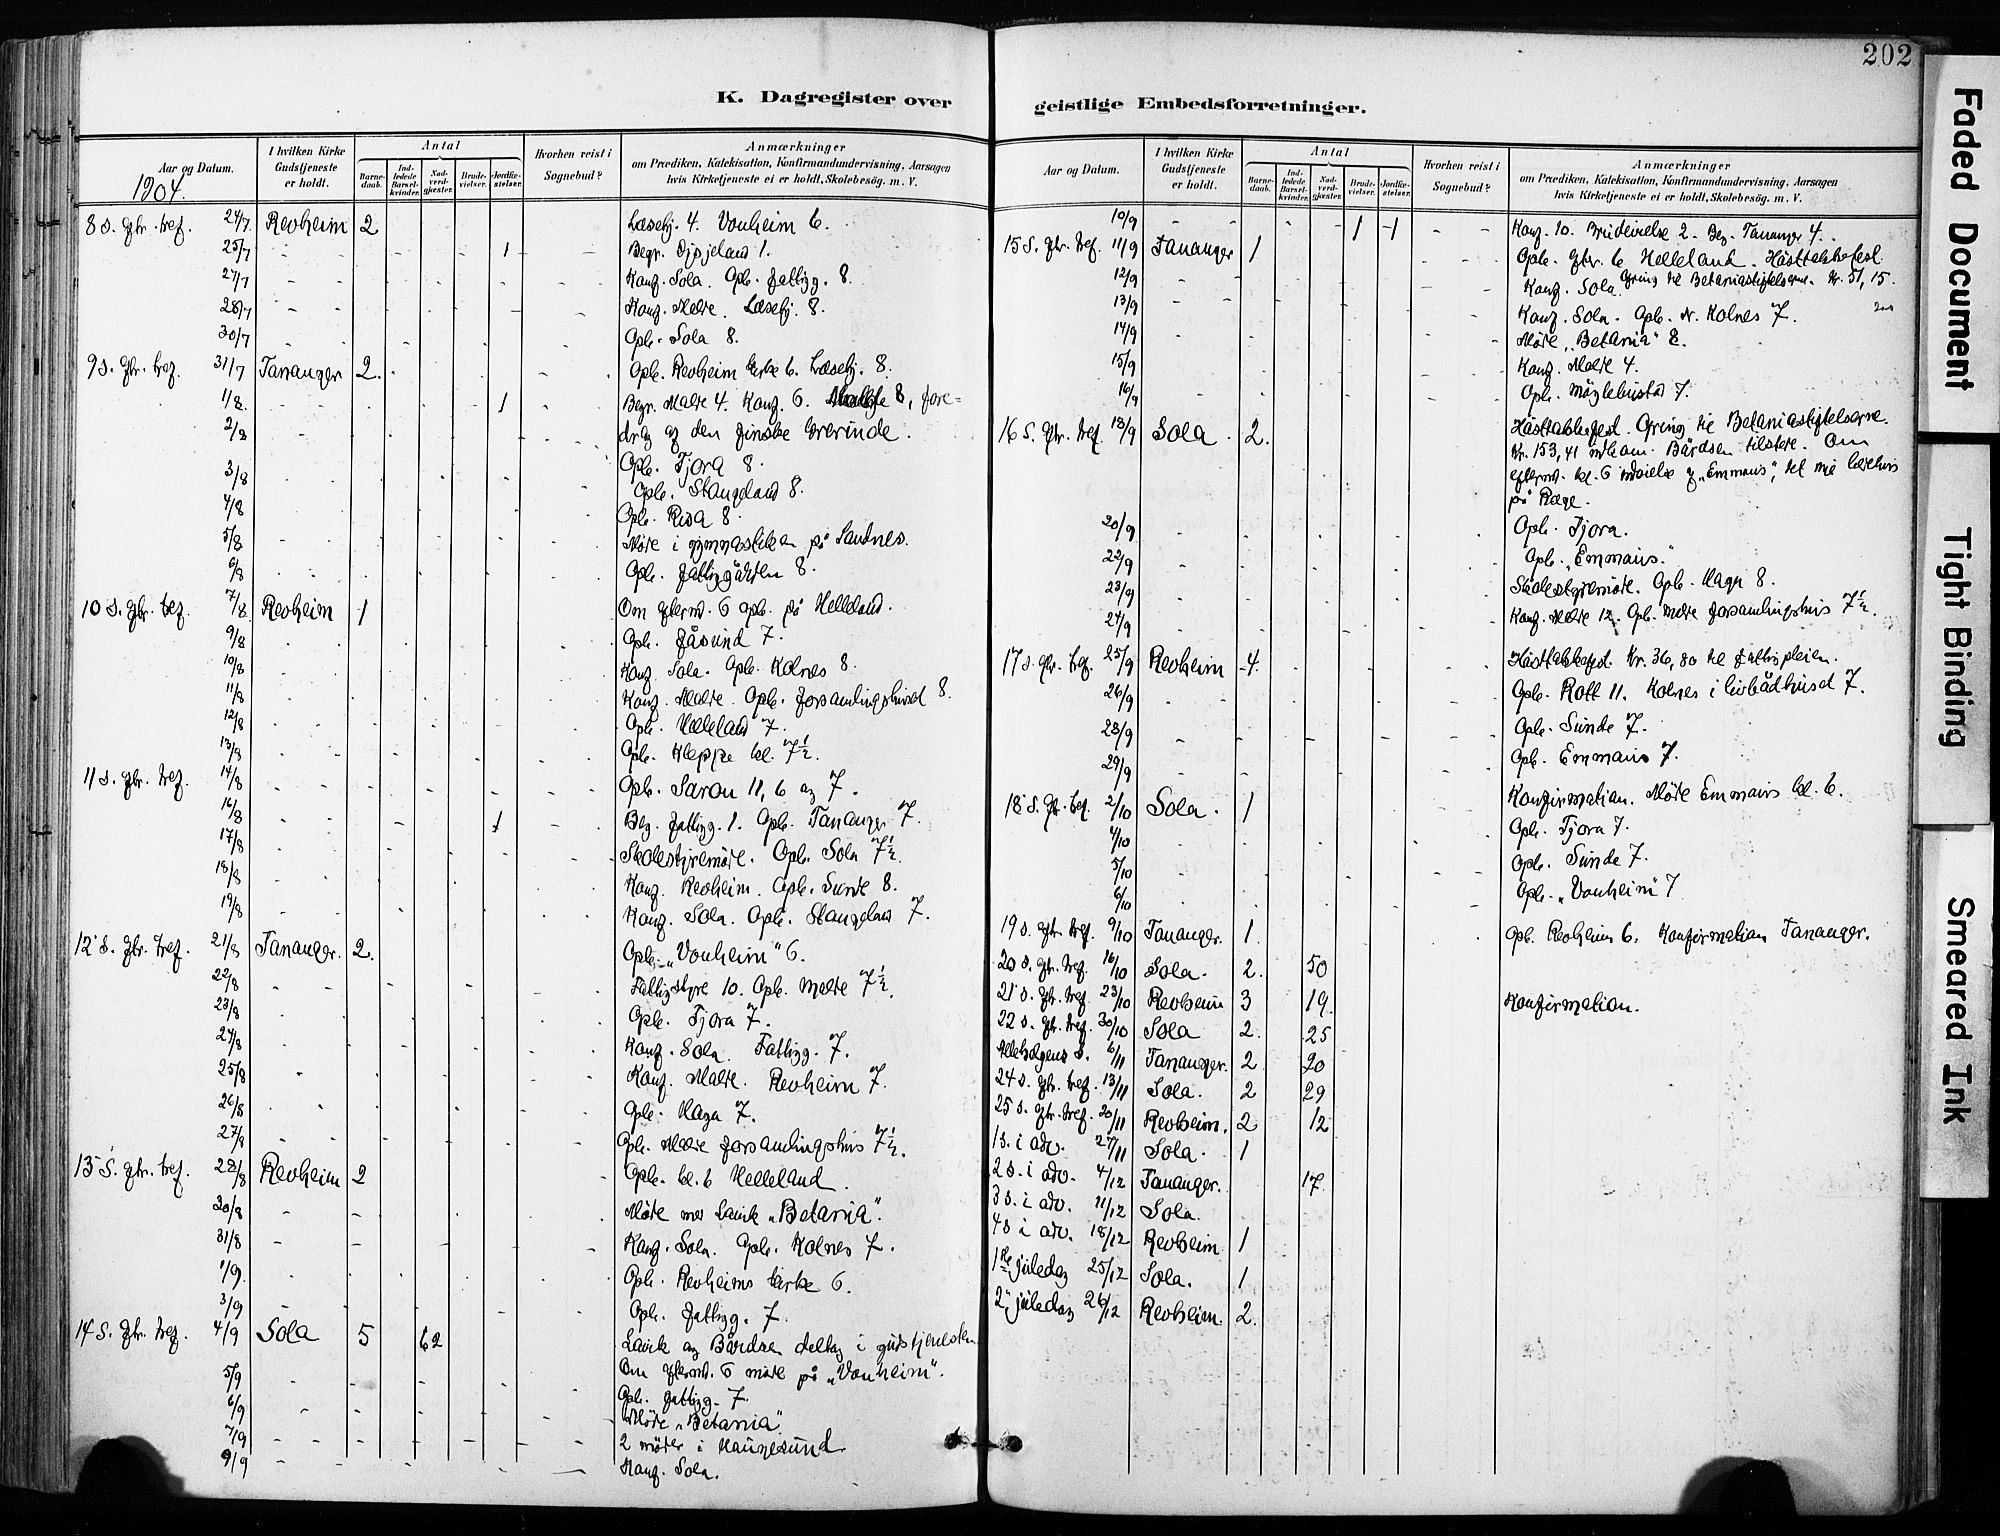 202
K. Dagregister over
geistlige Embedsforretninger.
Aar og Datum.
I hvilken Kirke Gudstjeneste er holdt.
Antal
Barnedaab.
Indledede Barselkvinder.
Nadverdgjester.
Brudevielser.
Jordfæstelser.
Hvorhen reist i Sognebud?
Anmærkninger
om Prædiken, Katekisation, Konfirmandundervisning, Aarsagen
hvis Kirketjeneste ei er holdt, Skolebesøg. m. V.
1904.
8 s. eftr. tref. 24/7 Revheim 2 Læsehj. 4. Vonheim 6.
25/7 1 Begr. 1.
27/7 Konf. Sola. Opb. fattigg. 8.
28/7 Konf. Malde. Læsehj. 8.
30/7 Opb. Sola 8.
9 s. eftr. tref. 31/7 Tananger 2. Opb. Revheim kirke 6. Læsehj. 8.
1/8 1 Begr. Malde 4. Konf. 6. 8, fore=
2/8 drag af den finske lærerinde.
3/8 Opb. Tjora 8.
4/8 Opb. Stangeland 8.
5/8 Opb. Risa 8.
6/8 Møde i gymnastikken på Sandnes.
Opb. fattiggården 8.
10 s. eftr. tref. 7/8 Revheim 1 Om efterm. 6 opb. på Helleland.
9/8 Opb. Jåsund 7.
10/8 Konf. Sola. Opb. Kolnes 8.
11/8 Konf. Malde. Opb. forsamlingshuset 8.
12/8 Opb. Helleland 7.
13/8 Opb. Kleppe kl. 7½.
11 s. eftr. tref. 14/8 Opb. Saron 11, 6 og 7.
16/8 1 Beg. fattigg. 1. Opb. Tananger 7.
17/8 Skolestyremøde. Opb. Sola 7½.
18/8 Konf. Revheim. Opb. Sunde 8.
19/8 Konf. Sola. Opb. Stangeland 7.
12' s. eftr. tref. 21/8 Tananger. 2. Opb. "Vonheim" 6.
22/8 Fattigstyre 10. Opb. Malde 7½.
23/8 Opb. Tjora 7.
24/8 Konf. Sola. Fattigg. 7.
25/8 Konf. Malde. Revheim 7.
26/8 Opb. Haga 7.
27/8 Opb. Malde forsamlingshus 7½.
13' s. eftr. tref. 28/8 Revheim 2 Opb. kl. 6 Helleland.
30/8 Møde med Lavik "Betania".
31/8 Konf. Sola. Opb. Kolnes 7.
1/9 Opb. Revheims kirke 6.
3/9 Opb. fattigg. 7.
14 s. eftr. tref. 4/9 Sola 5 62 Lavik og Bårdsen deltog i gudstjenesten
5/9 Om efterm. 6 møde på "Vonheim".
6/9 Opb. fattigg. 7.
Møde "Betania".
7/9 2 møder i Haugesund
9/9 Konf. Sola.
Aar og Datum.
I hvilken Kirke Gudstjeneste er holdt.
Antal
Barnedaab.
Indledede Barselkvinder.
Nadverdgjester.
Brudevielser.
Jordfæstelser.
Hvorhen reist i Sognebud?
Anmærkninger
om Prædiken, Katekisation, Konfirmandundervisning, Aarsagen
hvis Kirketjeneste ei er holdt, Skolebesøg. m. V.
10/9 1 1 Konf. 10. Brudevielse 2. Beg. Tananger 4.
15 s. eftr. tref. 11/9 Tananger 1 Opb. efter. 6 Helleland. Høsttakkefest.
12/9 Konf. Sola. Ofring til Betaniastiftelserne. Kr. 51, 15.
13/9 Konf. Sola. Opb. N. Kolnes 7.
14/9 Møde "Betania" 8.
15/9 Konf. Malde 4.
16/9 Opb. Møglebustad 7.
16 s. eftr. tref. 18/9 Sola. 2. Høsttakkefest. Ofring til Betaniastiftelserne.
Kr. 153, 41 indkom. Bårdsen tilstede. Om
efterm. kl. 6 indvielse af "Emmaus", det nye bedehus
på Ræge.
20/9 Opb. Tjora.
22/9 Opb. "Emmaus."
23/9 Skolestyremøde. Opb. Haga 8.
24/9 Konf. Malde 12. Opb. Malde forsamlingshus 7½.
17 s. eftr. tref. 25/9 Revheim 4. Høsttakkefest. Kr. 36, 80 til fattigpleien.
26/9 Opb. Rott 11. Kolnes i livbådhuset 7.
28/9 Opb. Sunde 7.
29/9 Opb. Emmaus 7.
18' s. eftr. tref. 2/10 Sola. 1 Konfirmation. Møde Emmaus kl. 6.
4/10 Opb. Tjora 7.
5/10 Opb. Sunde 7.
6/10 Opb. "Vonheim" 7
19 s. eftr. tref. 9/10 Tananger. 1. Opb. Revheim 6. Konfirmation Tananger.
20 s. eftr. tref. 16/10 Sola. 2. 50
21' s. eftr. tref. 23/10 Revheim 3 19. Konfirmation.
22 s. eftr. tref. 30/10 Sola 2. 25
Allehelgens s. 6/11 Tananger. 2 20
24 s. eftr. tref. 13/11 Sola. 2 29
25 s. eftr. tref. 20/11 Revheim. 2 12
1 s. i adv. 27/11 Sola. 1
2 s. i adv. 4/12 Tananger. 17.
3 s. i adv. 11/12 Sola.
4 s i adv. 18/12 Revheim 1
1ste juledag 25/12 Sola. 1
2' juledag 26/12 Revheim. 2.
Faded Document
Tight Binding
Smeared Ink